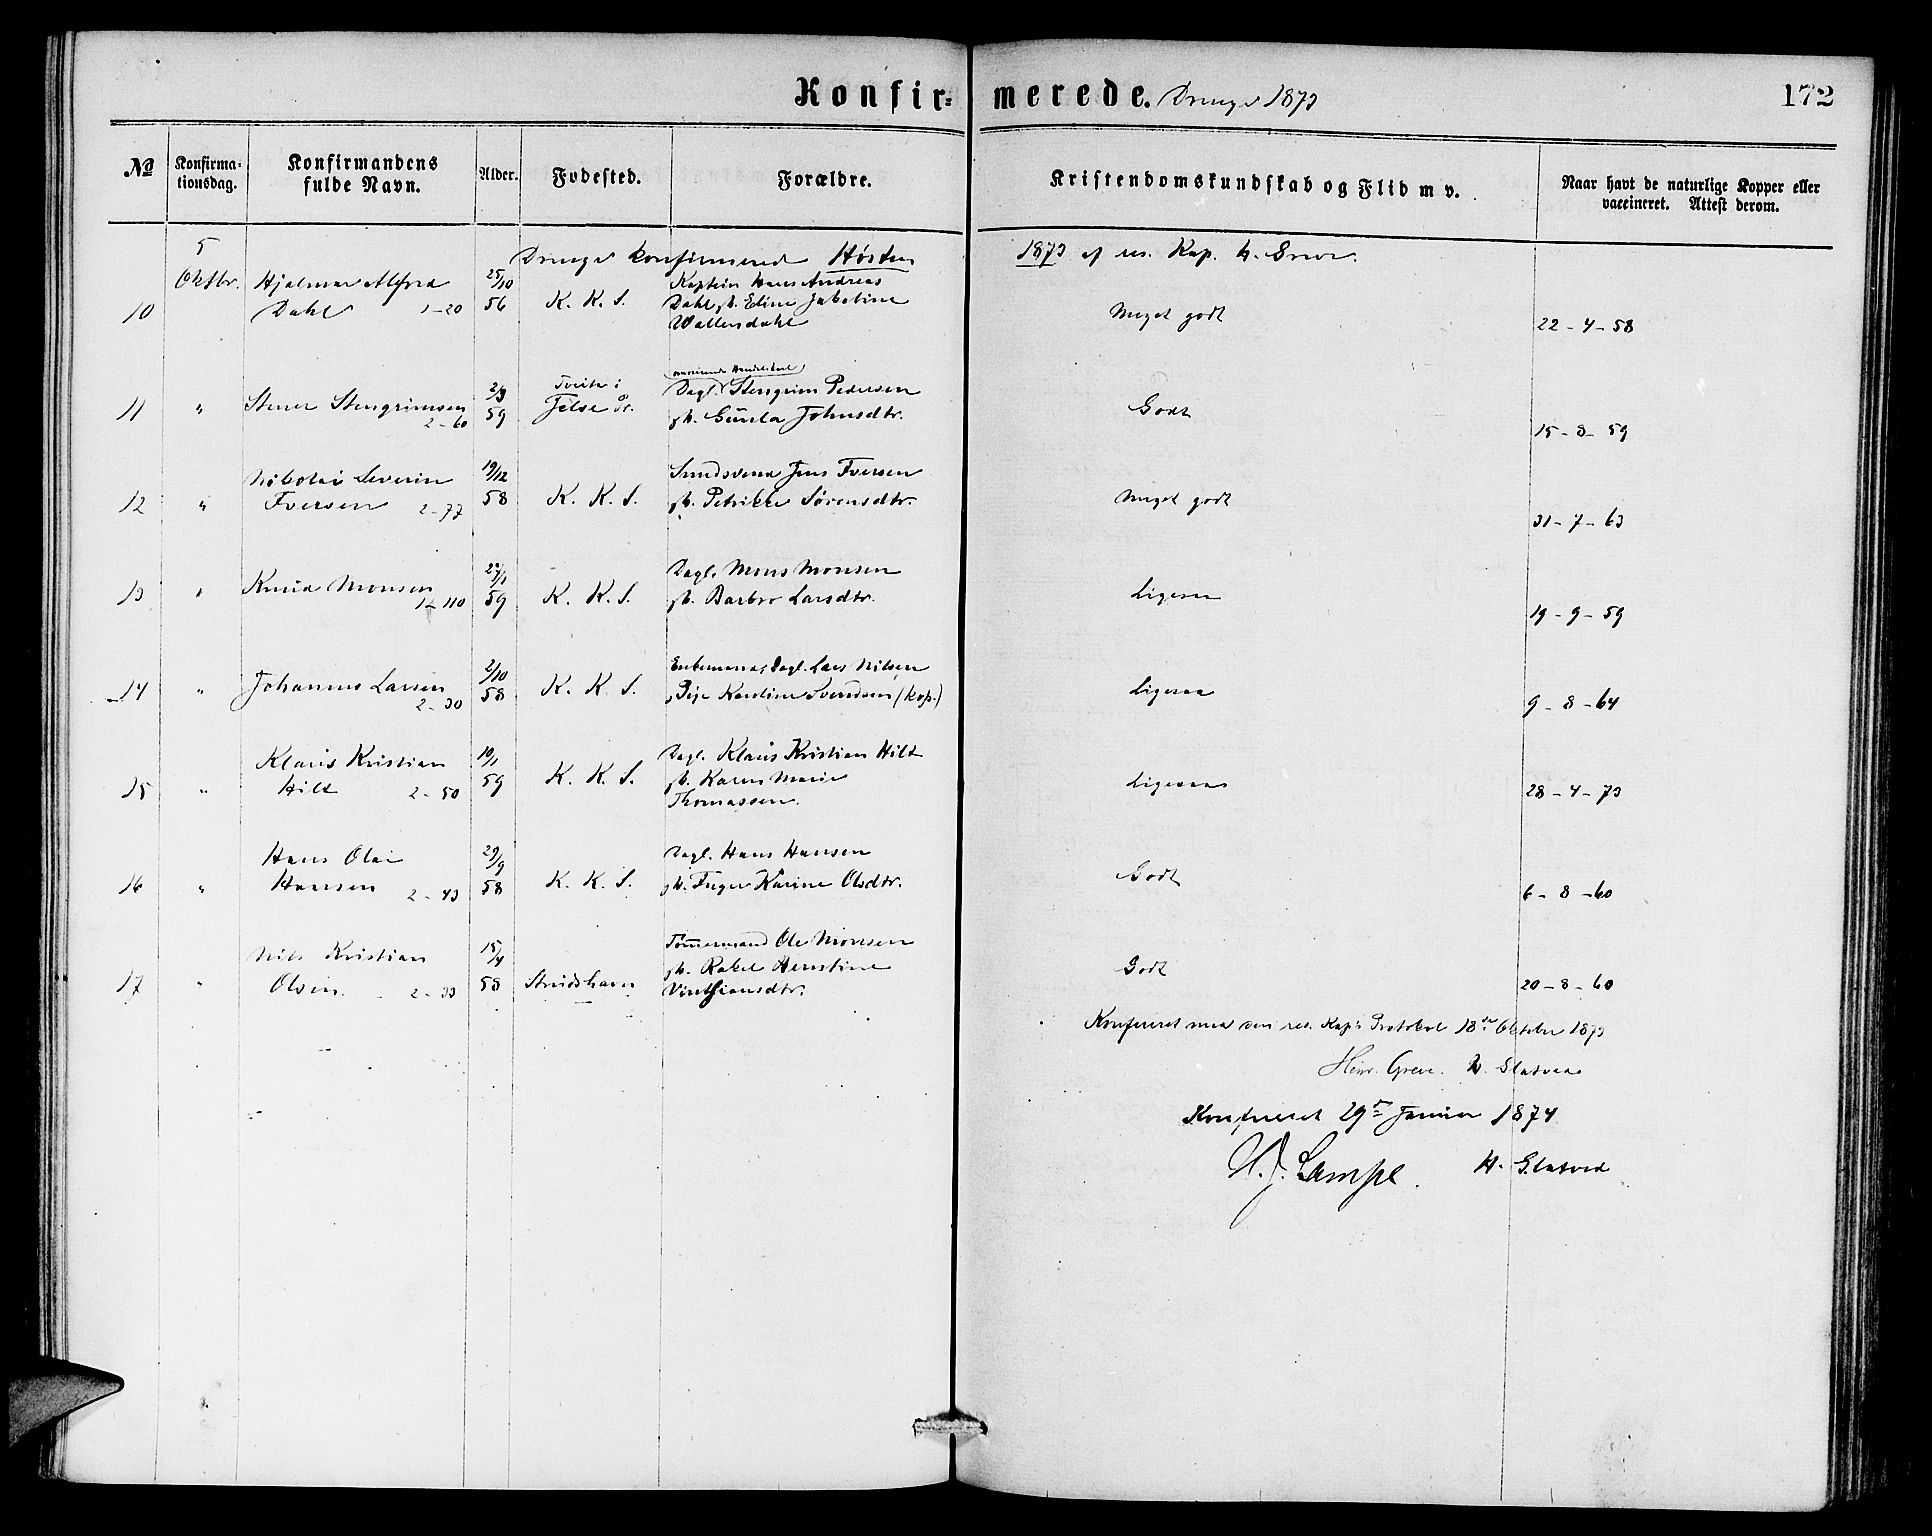 Konfir= merede. Drenge 1873
172
No Konfirma=tionsdag. Konfirmandens fulde Navn. Alder. Fødested. Forældre. Kristendomskundskab og Flid m v. Naar havt de naturlige Kopper eller vaccineret. Attest derom.
5 Drenge konfirmered Høsten 1873 af res. Kap. H. Greve.
Oktbr. Hjalmar Alfred 25/10 Kaptein Hans Andreas
10 Dahl 1-20 56 K. K. S. Dahl gh. Edine Jakobine Meget godt 22-4-58
Wallendahl
Tveite i
11 " Stener Stengrimsen 2/3 Dagl. Stengrim Pedersen Godt
2-60 59 gh. Gunla Johnsdtr. 15-8-59
Nikolai Severin 19/12 Svend Jens Iversen
12 " Iversen 2-77 58 K. K. S. gh. Petrikke Sørensdtr. Meget godt 31-7-63
Knud Monsen Dagl. Mons Monsen
13 " 1-110 59 K. K. S. gh. Barbro Larsdtr. Ligesaa 19-9-59
2/10 Enkemand, Dagl. Lars Nilsen
14 " Johannes Larsen 58 K. K. S. Pige Karoline Svendsen (kop.) Ligesaa
2-30 9-8-64
Klaus Kristian 10/1 Dagl. Klaus Kristian Hilt
15 " Hilt 2-50 59 K. K. S. gh. Karen Marie Ligesaa 28-4-73
Thomassen.
Hans Olai 29/9 Dagl. Hans Hansen
16 " Hansen 2-43 58 K. K. S. gh. Inger Karine Olsdtr. Godt 6-8-60
Nils Kristian 15/4 Tømmermand Ole Monsen
gh. Rakel Hernstine Godt
17 " Olsen 2-33 58 Strudshavn 20-8-60
Konfereret med den res. Kap's Protokol 18de Oktober 1873
Henr. Greve. H. Slatved
Konfereret 29de Januar 1874
H. J. Lampe. H. Slatved